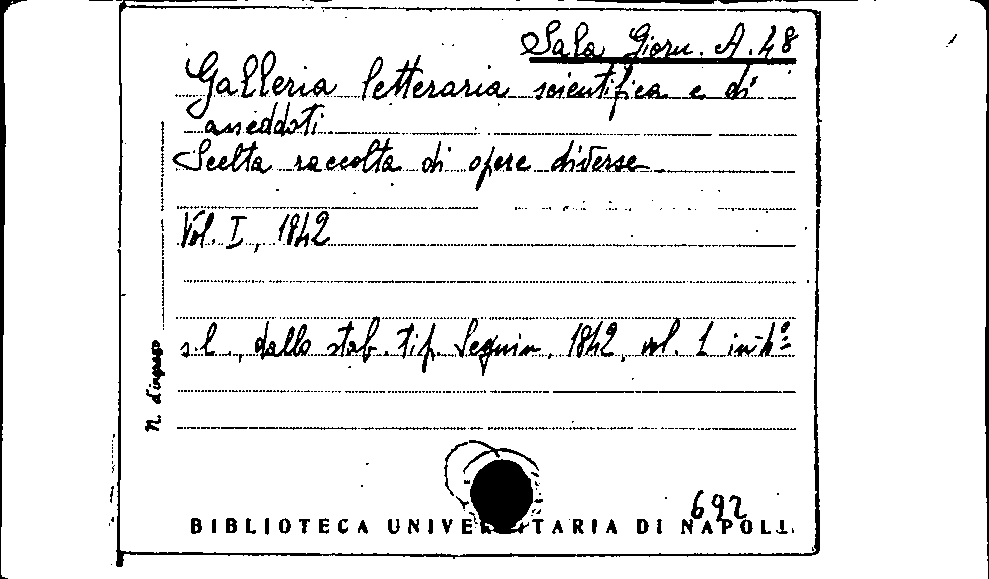 Sala Giorn. A. 48
Galleria letteraria scientifica e di
aneddoti.
Scelta raccolta di opere diverse
Vol. I, 1842
s.l., dallo stab. tip. Seguin, 1842, vol. 1 in 4º
N. d'ingresso
692
BIBLIOTECA UNIVERSITARIA DI NAPOLI.